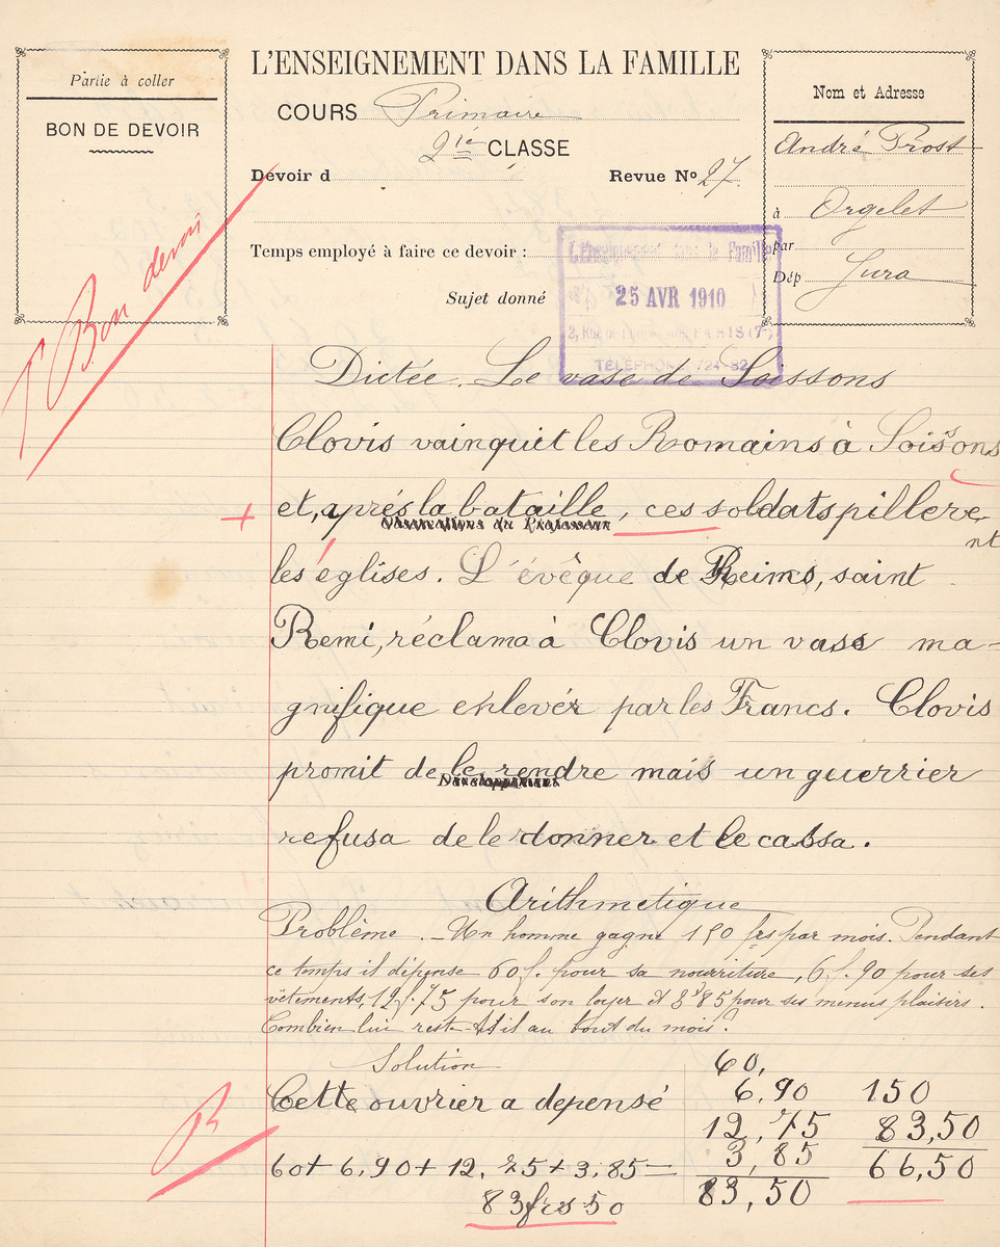 Partie à coller
BON DE DEVOIR
L'ENSEIGNEMENT DANS LA FAMILLE
COURS Primaire
2ie CLASSE
Devoir d
Revue No 27.
Temps employé à faire ce devoir :
Sujet donné
Nom et Adresse
André Prost
à Orgelet
par
Dép Jura
L'Enseignement dans la Famille
25 AVR 1910
PARIS (7e)
TÉLÉPHONE 724-82
T Bon devoir
Dictée. Le vase de Soissons
Clovis vainquit les Romains à Soissons
et, aprés la bataille, ces soldats pillère
nt
Observations du Professeur
les églises. L'évêque de Reims, saint
Remi, réclama à Clovis un vase ma-
gnifique enlevér par les Francs. Clovis
promit de le rendre mais un guerrier
Développement
refusa de le donner et le cassa.
Arithmetique
Problême. - Un homme gagne 150 frs par mois. Pendant
ce temps il dépense 60 f. pour sa nourriture, 6 f. 90 pour ses
vêtements, 12 f. 75 pour son loyer et 3f85 pour ses menus plaisirs.
Combien lui reste-t-il au bout du mois?
Solution
Cette ouvrier a depensé
60+ 6,90+ 12,75+3,85=
83frs50
60,
6,90
12,75
3,85
83,50
150
83,50
66,50
B